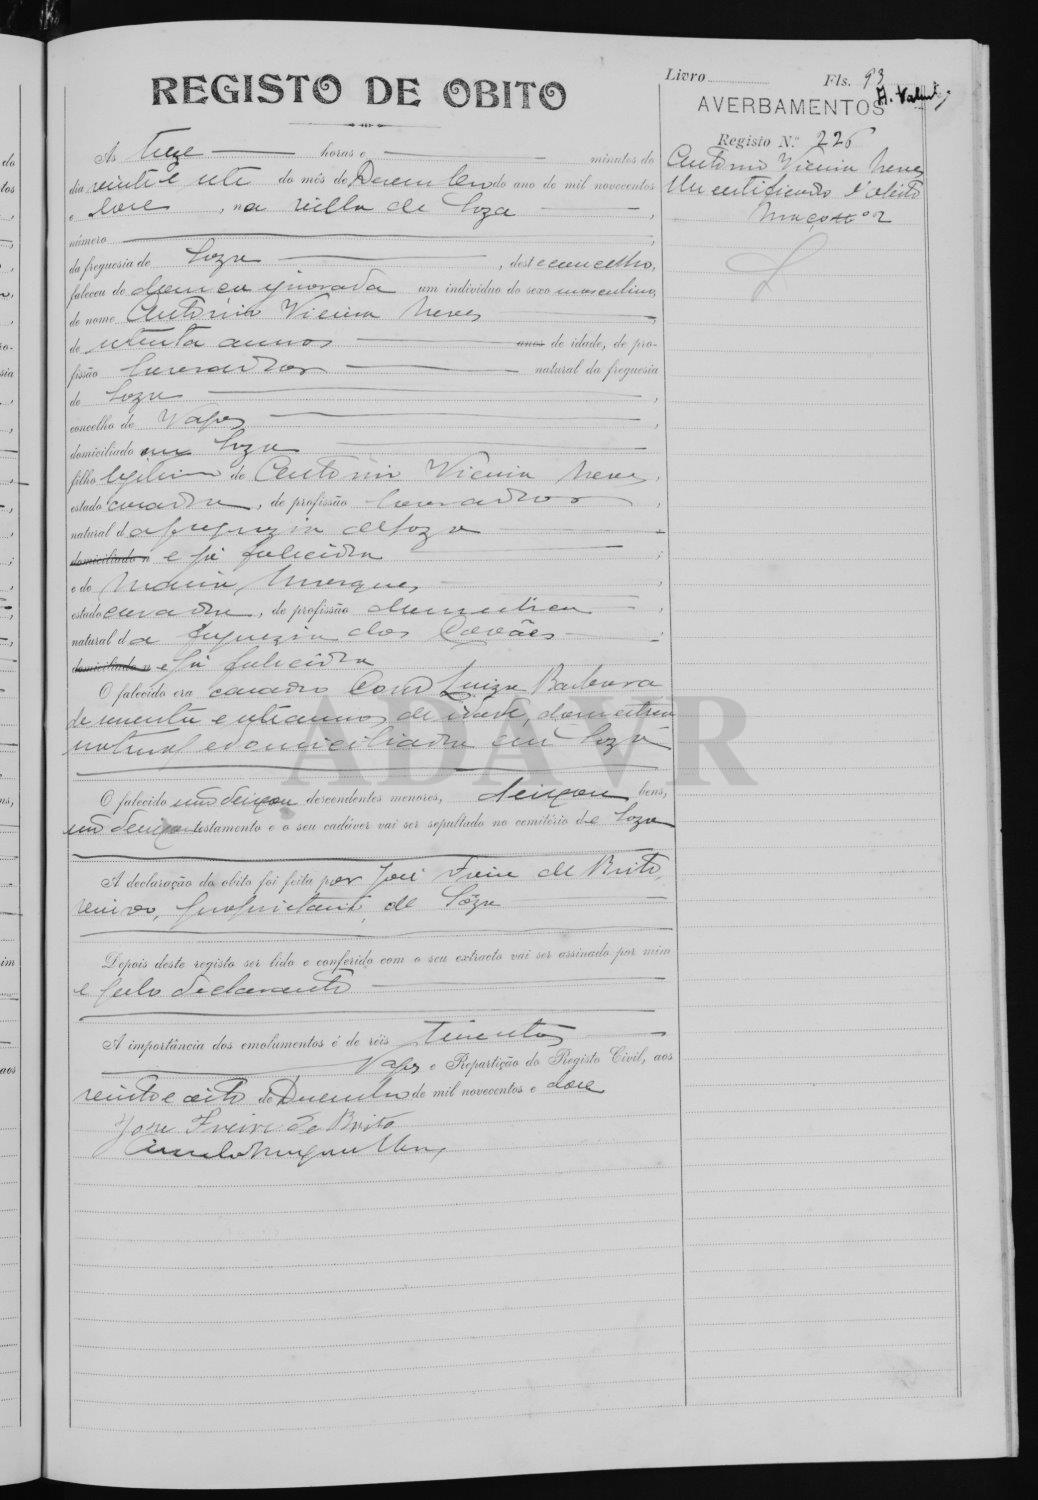 Livro Fls. 93
REGISTO DE OBITO
AVERBAMENTOS
Registo N.º 226
António Vieira Neves
Um certificado d'obito
Maço nº 2
Às treze horas e minutos do
dia vinte e sete do mês de Dezembro do ano de mil novecentos
e doze, na villa de Soza
número
da freguesia de Soza, deste concelho,
faleceu de doença ignorada um individuo do sexo masculino,
de nome António Vieira Neves
de setenta annos anos de idade, de pro-
fissão lavrador natural da freguesia
de Soza
concelho de Vagos
domiciliado em Soza
filho legitimo de António Vieira Neves,
estado casado, de profissão lavrador,
natural da freguezia de Soza
domiciliado n e já falecido
e de Maria Marques,
estado casada, de profissão domestica
natural da freguezia dos Covães
domiciliada n e já falecida
O falecido era casado com Luiza Barbara
de sessenta e sete annos de idade, domestica
natural e domiciliada em Soza
O falecido não deixou descendentes menores, deixou bens,
não deixou testamento e o seu cadáver vai ser sepultado no cemitério de Soza
A declaração do obito foi feita por José Freire de Brito,
viuvo, proprietario, de Sôza
Depois deste registo ser lido e conferido com o seu extracto vai ser assinado por mim
e pelo declarante
A importância dos emolumentos é de réis trezentos
Vagos e Repartição do Registo Civil, aos
vinte e oito de Dezembro de mil novecentos e doze
José Freire de Brito
ADAVR